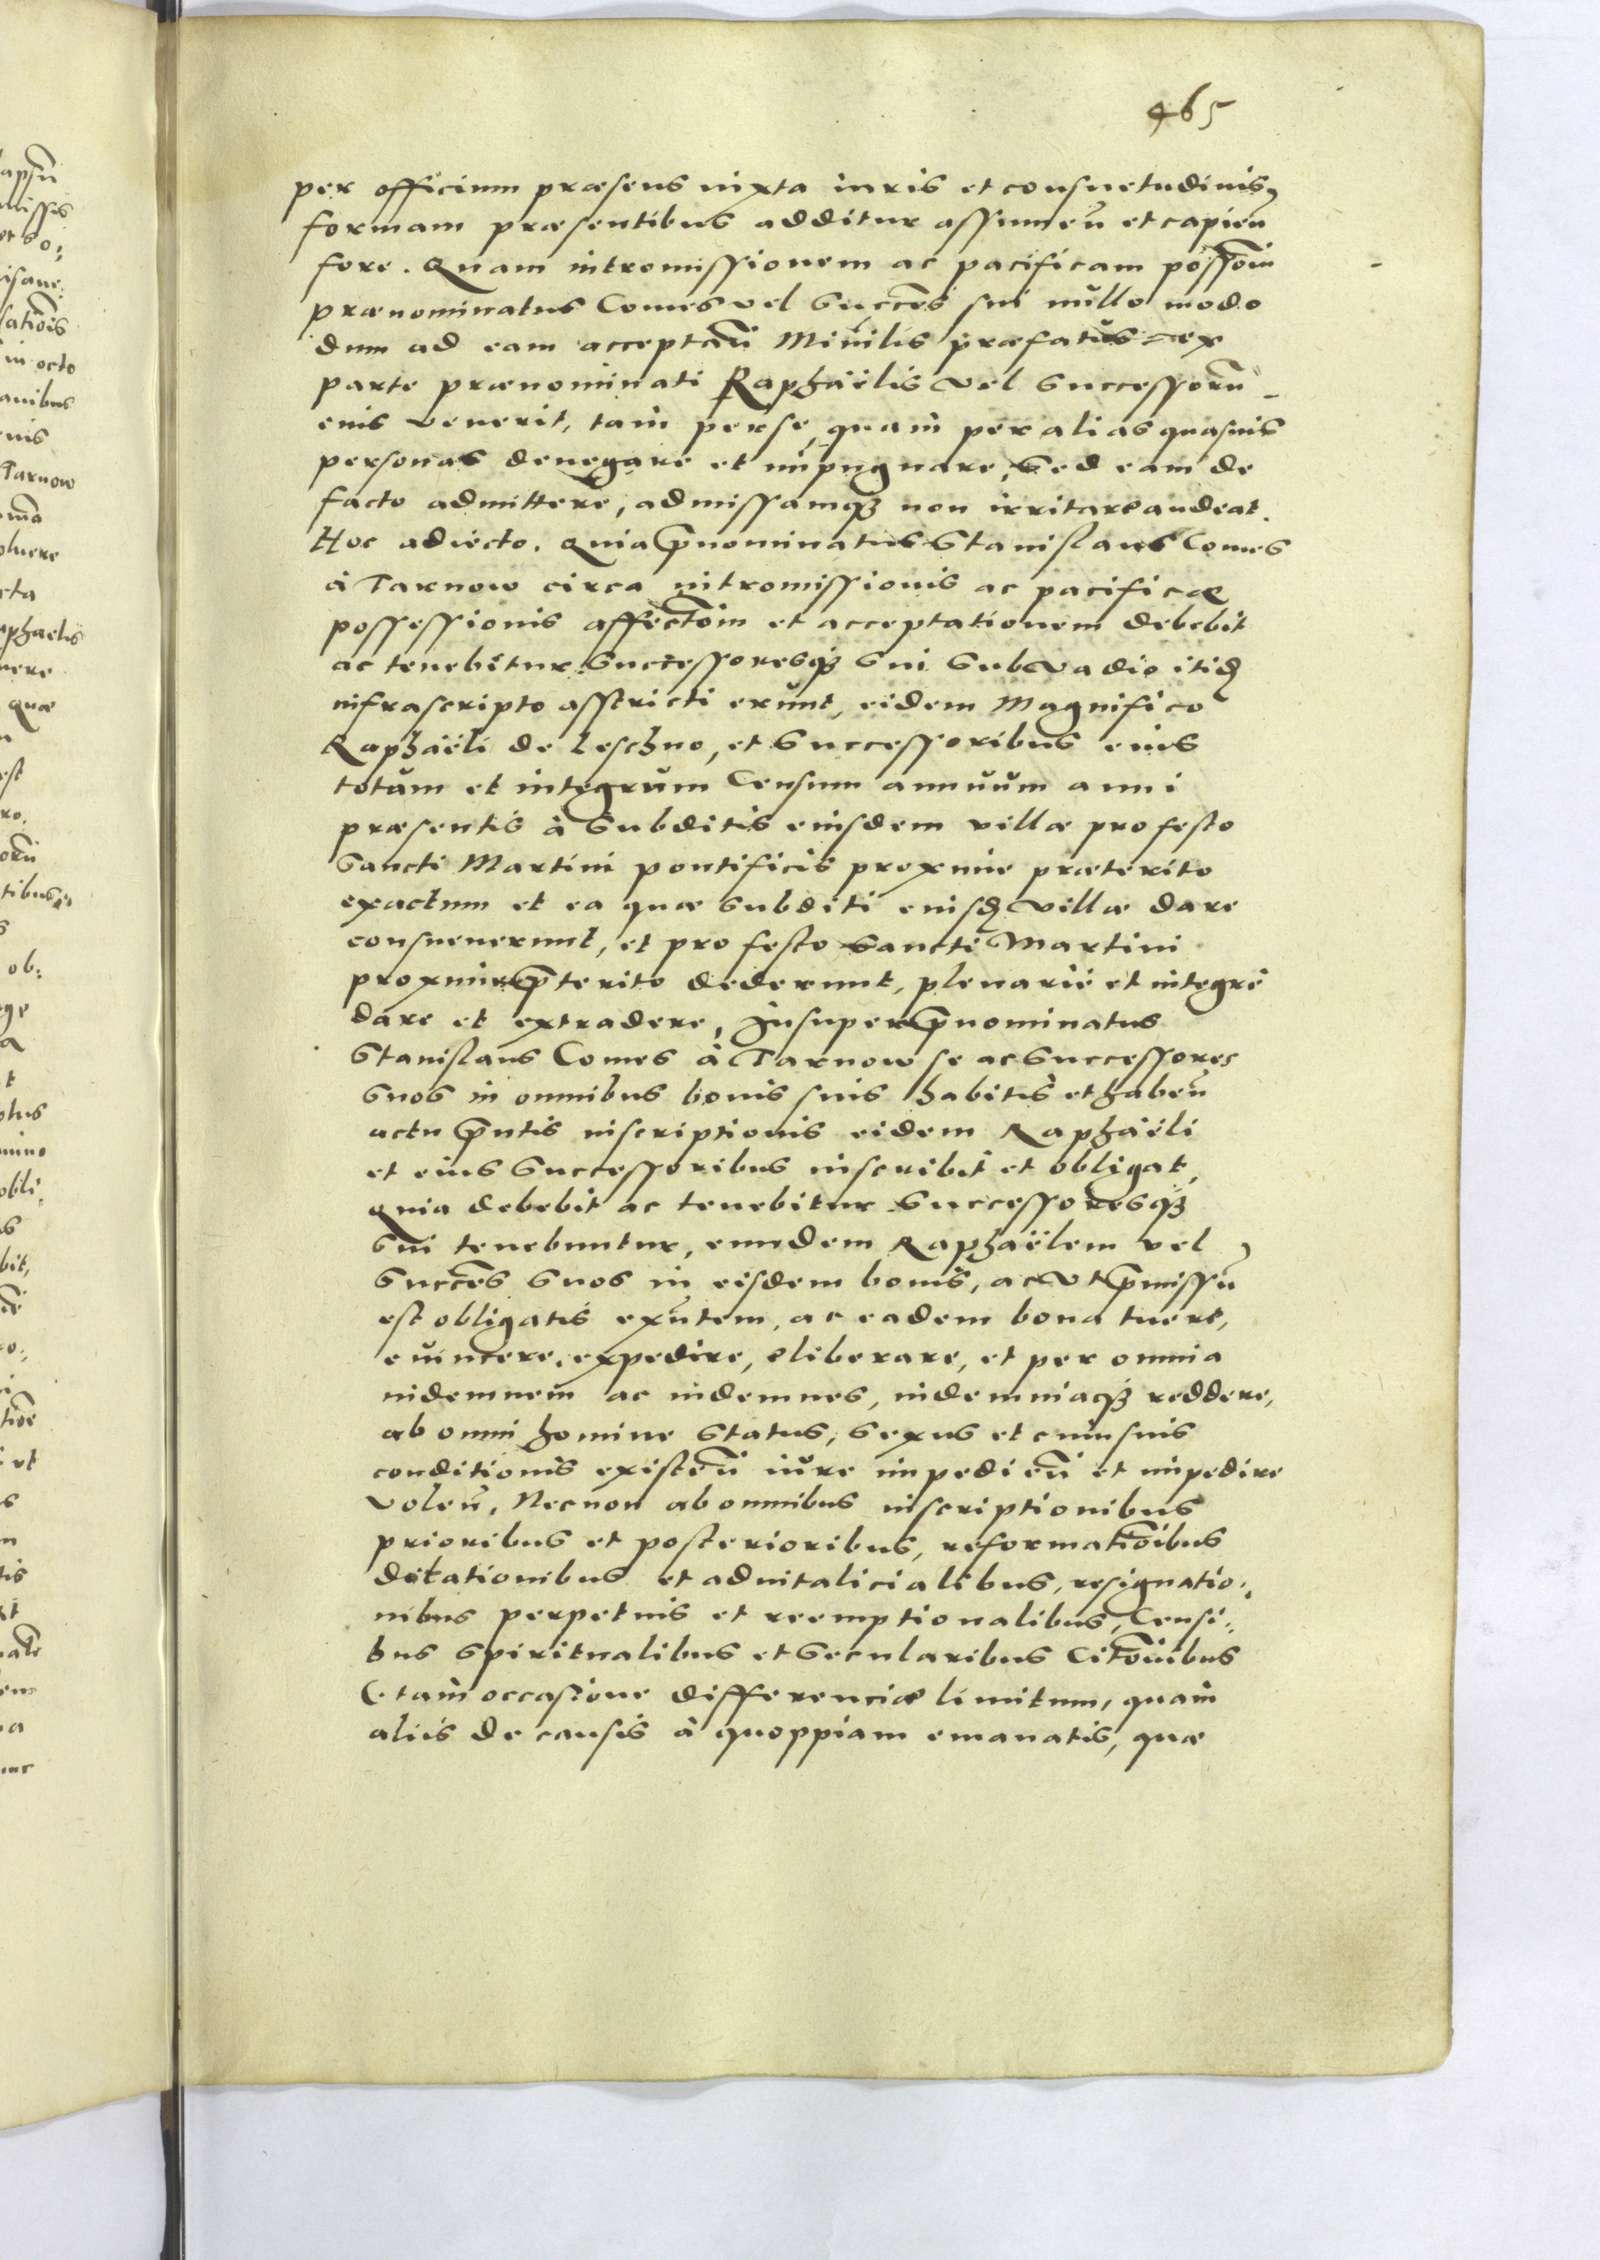 465
per officium præsens iuxta iuris et consuetudinis
formam præsentibus additur assumeñ et capieñ
fore. Quam intromissionem ac pacificam possoem̃
prænominatus Comes vel Succẽs sui nullo modo
dum ad eam acceptañ Minĩlis præfatus ex
parte prænominati Raphaëlis vel Successorũ
eius venerit, tam per se, quam per alias quasuis
personas denegare et impugnare, Sed eam de
facto admittere, admissamq3 non irritare audeat.
Hoc adiecto. Quia p̃nominatus Stanislaus Comes
à Tarnow circa intromissionis ac pacificæ
possessionis affectõm et acceptationem debebit
ac tenebitur Successoresq3 Sui Sub vadio itid
infrascripto asstricti erunt, eidem Magnifico
Raphaëli de Leschno, et Successoribus eius
totum et integrum Censum annuum anni
præsentis à Subditis eiusdem villæ pro festo
Sancti Martini pontificis proxime præterito
exactum et ea quæ Subditi eiusd villæ dare
consueuerunt, et pro festo Sancti Martini
proxime p̃terito dederunt, plenariè et integrè
dare et extradere, Insuper p̃nominatus
Stanislaus Comes à Tarnow se ac Successores
Suos in omnibus bonis suis habitis et habeñ
actu p̃ntis inscriptionis eidem Raphaëli
et eius Successoribus inscribit et obligat,
Quia debebit ac tenebitur Successoresq3
Sui tenebuntur, eundem Raphaëlem vel
Succẽs Suos in eisdem bonis, ac vt p̃missũ
est obligatis exũtem, ac eadem bona tuere,
euincere, expedire, eliberare, et per omnia
indemnem ac indemnes, indemniaq3 reddere,
ab omni homine Status, Sexus et cuiusuis
conditionis existeñ iure impedieñ et impedire
voleñ, Necnon ab omnibus inscriptionibus
prioribus et posterioribus, reformatõibus
dotationibus et aduitalicialibus, resignatio:
nibus perpetuis et reemptionalibus, Censi:
bus Spiritualibus et Secularibus Citõnibus
tam occasione differenciæ limitum, quam
aliis de causis à quoppiam emanatis, quæ